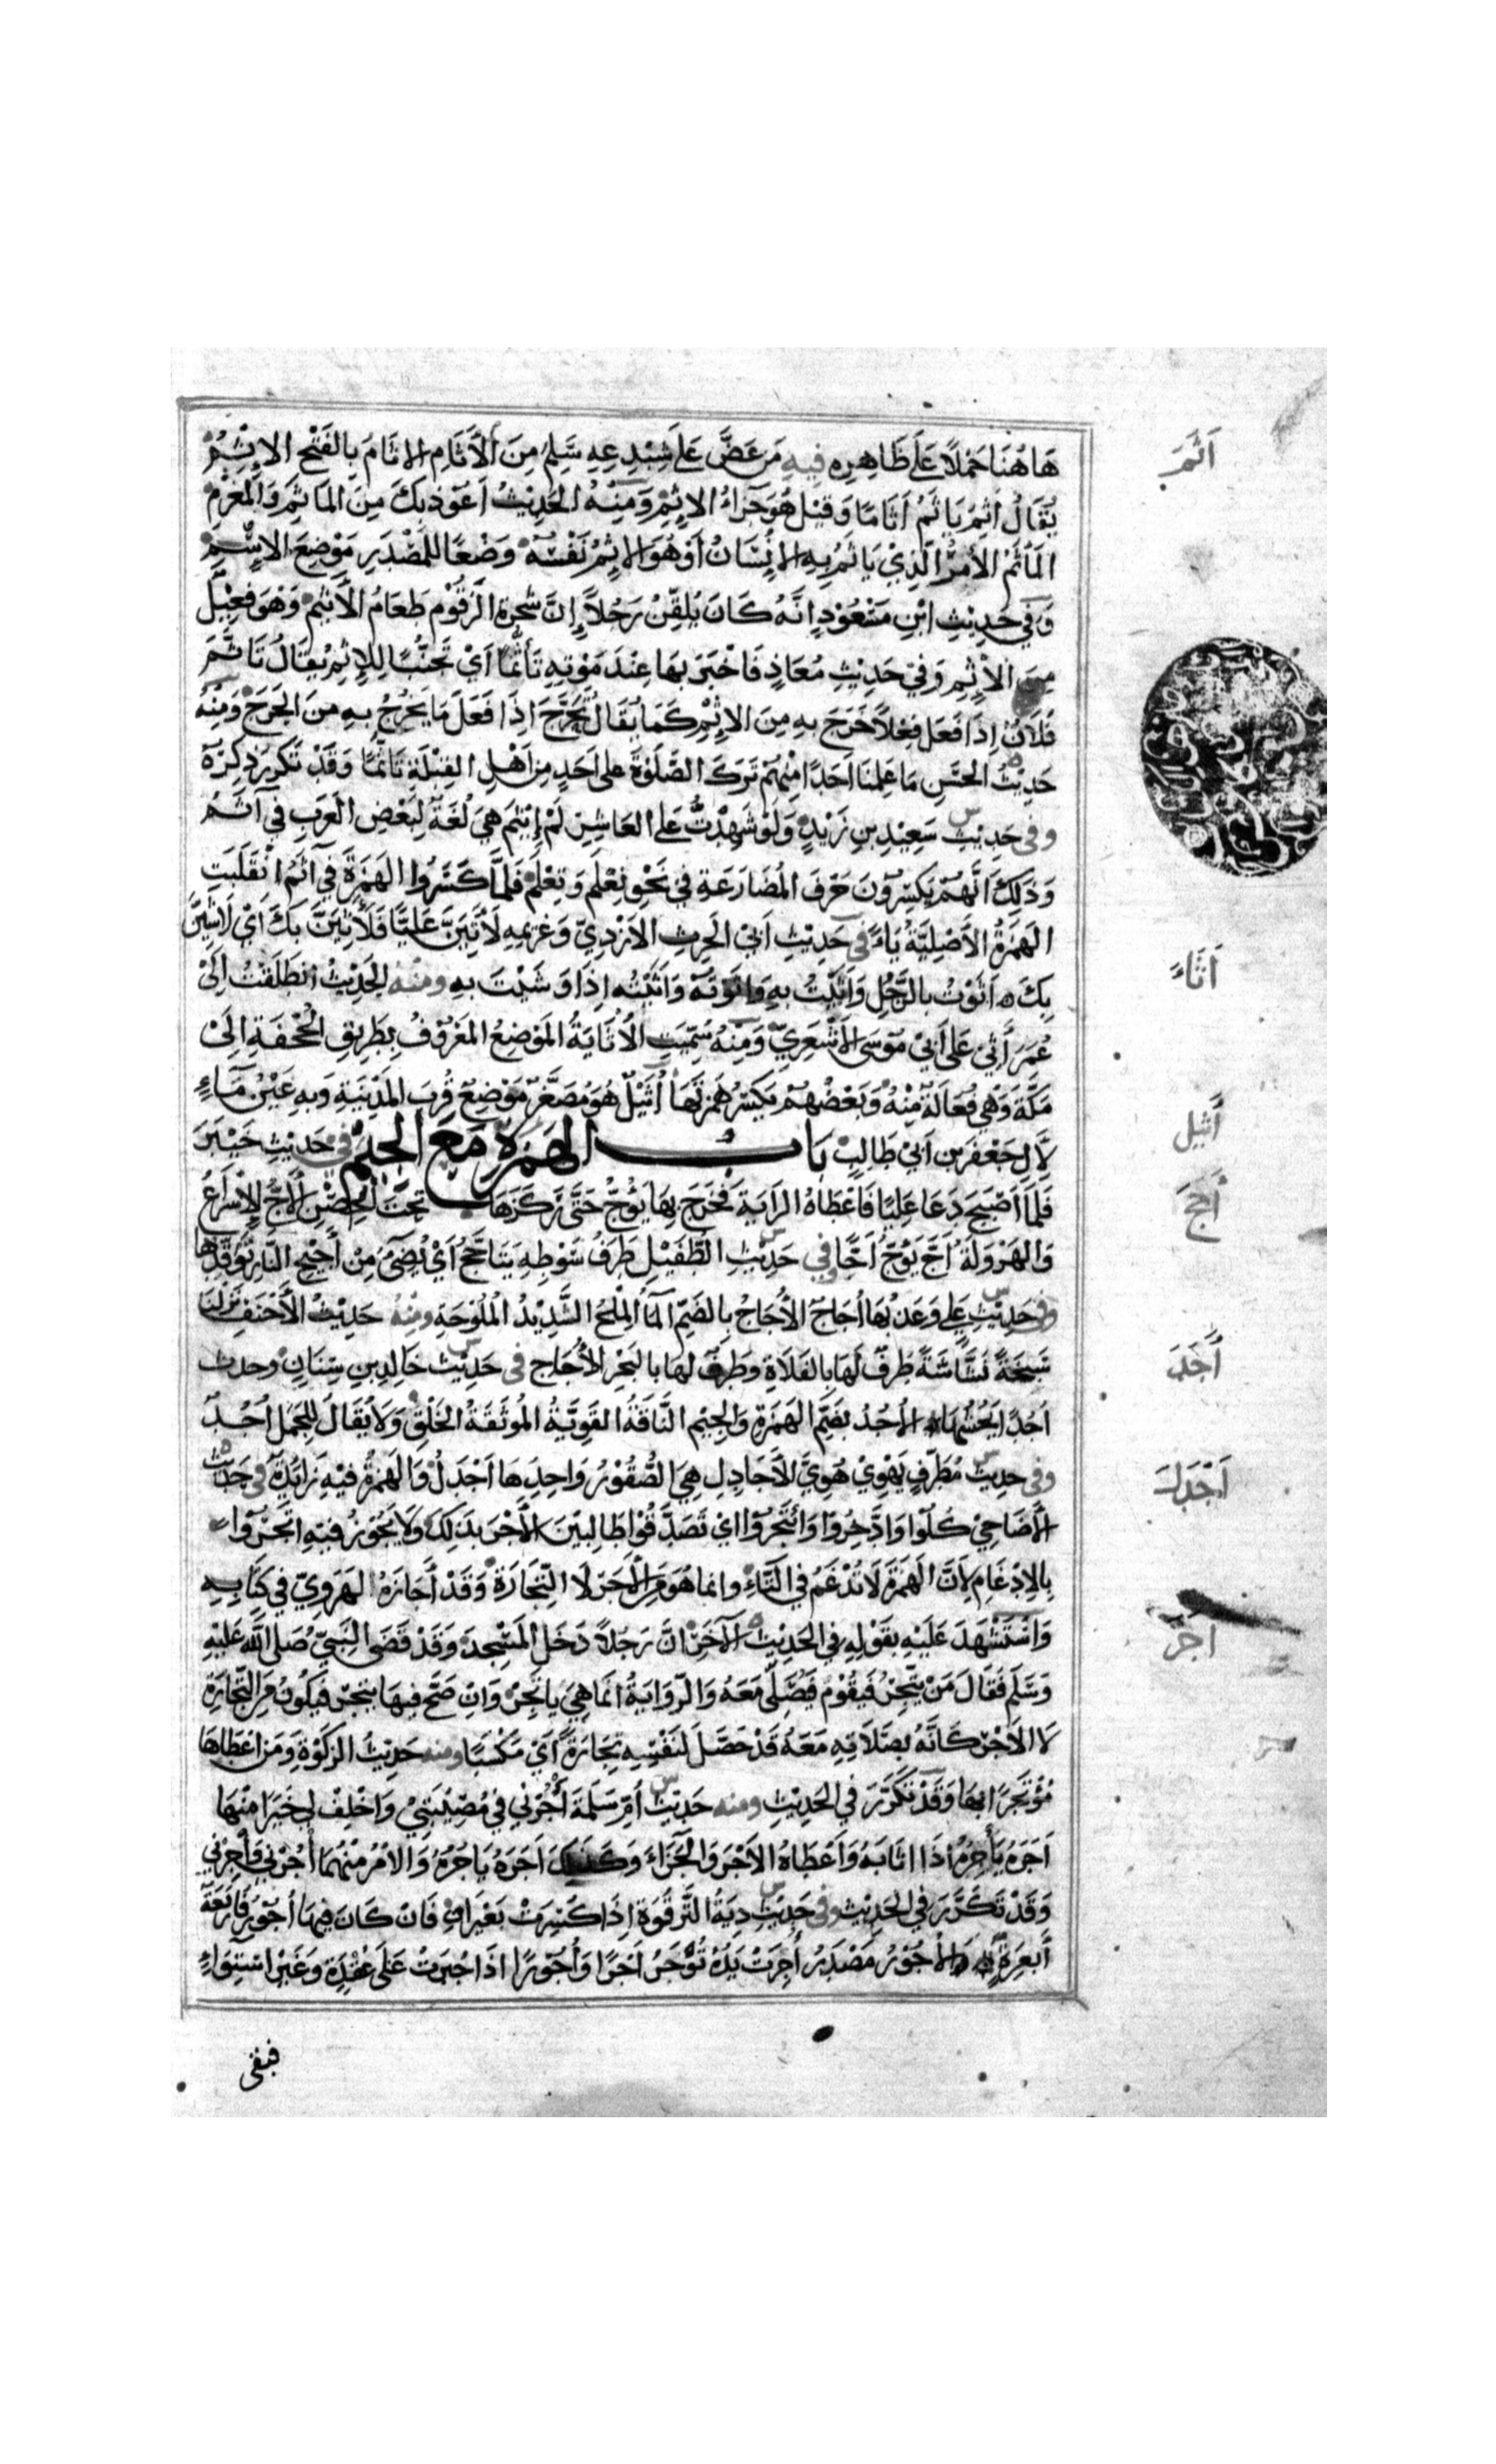 هَاهُنَا حَمْلًا عَلَى ظَاهِرِهِ فِيهِ مَن عَضَّ عَلَى شِبْدِعِهِ سَلِمَ مِنَ الْأَثَامِ الاثَامُ بِالفَتْحِ الاِثْمُ
أَثَمَ
يُقَالُ أَثِمَ يَاثَمُ أَثَامًا وَقِيْلَ هُوَ جَزَاءُ الاِثْمِ وَمِنْهُ الحَدِيْثُ أَعُوْذُ بِكَ مِنَ المَاثَمِ وَالمَغْرَمِ
المَأْثَمُ الأَمْرُ الَّذِيْ يَاثَمُ بِهِ الاِنْسَانُ أَوْ هُوَ الاِثْمُ نَفْسُهُ وَضْعًا لِلْمَصْدَرِ مَوْضِعَ الاِسْمِ
وَفِي حَدِيْثِ ابْنِ مَسْعُوْدٍ اِنَّهُ كَانَ يُلَقِّنُ رَجُلًا إِنَّ شَجَرَةَ الزَّقُّوْمِ طَعَامُ الْأَثِيْمِ وَهُوَ فَعِيْلٌ
مِنَ الاِثْمِ وَفِي حَدِيْثِ مُعَاذٍ فَاَخْبَرَ بِهَا عِنْدَ مَوْتِهِ تَأَثُّمًا اَيْ تَجَنُّبًا لِلاِثْمِ يُقَالُ تَاَثَّمَ
فُلَانٌ اِذَا فَعَلَ فِعْلًا خَرَجَ بِهِ مِنَ الاِثْمِ كَمَا يُقَالُ تَحَرَّجَ اِذَا فَعَلَ مَا يَخْرُجُ بِهِ مِنَ الحَرَجِ وَمِنْهُ
حَدِيْثُ الحَسَنِ مَا عَلِمْنَا اَحَدًا مِنْهُمْ تَرَكَ الصَّلٰوةَ عَلَى اَحَدٍ مِنْ اَهْلِ القِبْلَةِ تَاَثُّمًا وَقَدْ تَكَرَّرَ ذِكْرُهُ
وفى حَدِيْثِ سَعِيْدِ بنِ زَيْدٍ وَلَوْ شَهِدْتُ عَلَى العَاشِرِ لَمْ إِيْثَمْ هِيَ لُغَةٌ لِبَعْضِ العَرَبِ فِي آثَمُ
وَذٰلِكَ اَنَّهُمْ يَكْسِرُوْنَ حَرْفَ المُضَارَعَةِ فِي نَحْوِ نِعْلَمُ وَتِعْلَمُ فَلَمَّا كَسَرُوا الهَمْزَةَ فِي آثَمُ انْقَلَبَتِ
الهَمْزَةُ الأَصْلِيَّةُ يَاءً فى حَدِيْثِ اَبِي الحَرِثِ الاَزْدِيِّ وَغَرِيْمِهِ لَأَتِيَنَّ عَلِيًّا فَلَأَثِيَنَّ بِكَ اَيْ لَأَشِيَنَّ
أَثَاءَ
بِكَ اَثَوْتُ بِالرَّجُلِ وَاَثَيْتُ بِهِ وَاَثَوْتُهُ وَاَثَيْتُهُ اِذَا وَشَيْتَ بِهِ ومنه الحَدِيْثُ اِنْطَلَقْتُ اِلَى
عُمَرَ أَثِيْ عَلَى أَبِيْ مُوْسَى الاَشْعَرِيِّ وَمِنْهُ سُمِّيَتِ الاُثَايَةُ المَوْضِعُ المَعْرُوْفُ بِطَرِيْقِ الجُحْفَةِ اِلَى
مَكَّةَ وَهِيَ فُعَالَةٌ مِنْهُ وَبَعْضُهُمْ يَكْسِرُ هَمْزَتَهَا أُثَيْلٌ هُوَ مُصَغَّرٌ مَوْضِعٌ قُرْبَ المَدِيْنَةِ وَبِهِ عَيْنُ مَاءٍ
أُثيل
لِاٰلِ جَعْفَرِ بنِ اَبِيْ طَالِبٍ بَابُ الهَمْزَةِ مَعَ الجِيْمِ فى حَدِيْثِ خَيْبَرَ
فَلَمَّا اَصْبَحَ دَعَا عَلِيًّا فَاَعْطَاهُ الرَّايَةَ فَخَرَجَ بِهَا يَؤُجُّ حَتَّى رَكَزَهَا تَحْتَ الحِصْنِ الْأَجُّ الاِسْرَاعُ
أَجَجَ
وَالهَرْوَلَةُ اَجَّ يَؤُجُّ اَجًّا وفى حَدِيْثِ الطُّفَيْلِ طَرَفُ سَوْطِهِ يَتَاَجَّجُ اَيْ يُضِيْءُ مِنْ أَجِيْجِ النَّارِ تَوَقُّدِهَا
وفى حَدِيْثِ عَلِيٍّ وَعَذْبُهَا اُجَاجٌ الاُجَاجُ بِالضَمِّ المَاءُ المِلْحُ الشَّدِيْدُ المُلُوْحَةِ ومنه حَدِيْثُ الْأَحْنَفِ نَزَلْنَا
سَبِخَةً نَشَّاشَةً طَرَفٌ لَهَا بِالفَلَاةِ وَطَرَفٌ لَهَا بِالبَحْرِ الأُجَاجِ فى حَدِيْثِ خَالِدِ بنِ سِنَانٍ وجدت
أُجُد
اُجُدًا يَحُشُّهَا الاُجُدُ بِضَمِّ الهَمْزَةِ وَالجِيْمِ النَّاقَةُ القَوِيَّةُ المُوْثَقَةُ الخَلْقِ وَلَا يُقَالُ لِلْجَمَلِ اُجُدٌ
وفى حديث مُطَرِّفٍ يَهْوِيْ هُوِيَّ الْأَجَادِلِ هِيَ الصُّقُوْرُ وَاحِدُهَا اَجْدَلُ وَالهَمْزَةُ فِيْهِ زَائِدَةٌ فى حَدِيْثِ
أَجْدَل
الْأَضَاحِيْ كُلُوْا وَادَّخِرُوْا وَائْتَجِرُوْا اى تَصَدَّقُوْا طَالِبِيْنَ الْأَجْرَ بِذٰلِكَ وَلَا يَجُوْزُ فِيْهِ اتَّجِرُوْا
بِالاِدْغَامِ لِاَنَّ الهَمْزَةَ لَا تُدْغَمُ فِي التَّاءِ وانما هُوَ مِنَ الْأَجْرِ لَا التِّجَارَةِ وَقَدْ أَجَازَهُ الهَرَوِيُّ فِي كِتَابِهِ
وَاسْتَشْهَدَ عَلَيْهِ بِقَوْلِهِ فِي الحَدِيْثِ الآخَرِ اِنَّ رَجُلًا دَخَلَ المَسْجِدَ وَقَدْ قَضَى النَّبِيُّ صَلَّى اللّٰهُ عَلَيْهِ
أَجَرَ
وَسَلَّمَ فَقَالَ مَنْ يَتَّجِرُ فَيَقُوْمُ فَيُصَلِّي مَعَهُ وَالرِّوَايَةُ اِنَّمَا هِيَ يَاتَجِرُ وَاِنْ صَحَّ فِيهَا يَتَّجِرُ فَيَكُوْنُ مِنَ التِّجَارَةِ
لَا الاَجْرِ كَاَنَّهُ بِصَلَاتِهِ مَعَهُ قَدْ حَصَّلَ لِنَفْسِهِ تِجَارَةً أَيْ مَكْسَبًا ومنه حَدِيْثُ الزَّكٰوةِ وَمَنْ اَعْطَاهَا
مُؤْتَجِرًا بِهَا وَقَدْ تَكَرَّرَ فِي الحَدِيْثِ ومنه حَدِيْثُ اُمِّ سَلَمَةَ أْجُرْنِي فِي مُصِيْبَتِيْ وَاَخْلِفْ لِي خَيْرًا مِنْهَا
اَجَرَهُ يَأْجِرُهُ اِذَا اَثَابَهُ وَاَعْطَاهُ الاَجْرَ وَالجَزَاءَ وَكَذٰلِكَ اَجَرَهُ يَاجُرُهُ وَالاَمْرُ مِنْهُمَا أْجُرْنِي وَأْجِرْنِي
وَقَدْ تَكَرَّرَ فِي الحَدِيْثِ وفى حَدِيْثِ دِيَةُ التَّرْقُوَةِ اِذَا كُسِرَتْ بَعِيْرَانِ فَاِنْ كَانَ فِيهَا اُجُوْرٌ فَاَرْبَعَةُ
أَبْعِرَةٍ الاُجُوْرُ مَصْدَرُ أُجِرَتْ يَدُهُ تُوْجَرُ اَجْرًا وَاُجُوْرًا اِذَا جُبِرَتْ عَلَى عُقْدَةٍ وَغَيْرِ اسْتِوَاءٍ
فبقى